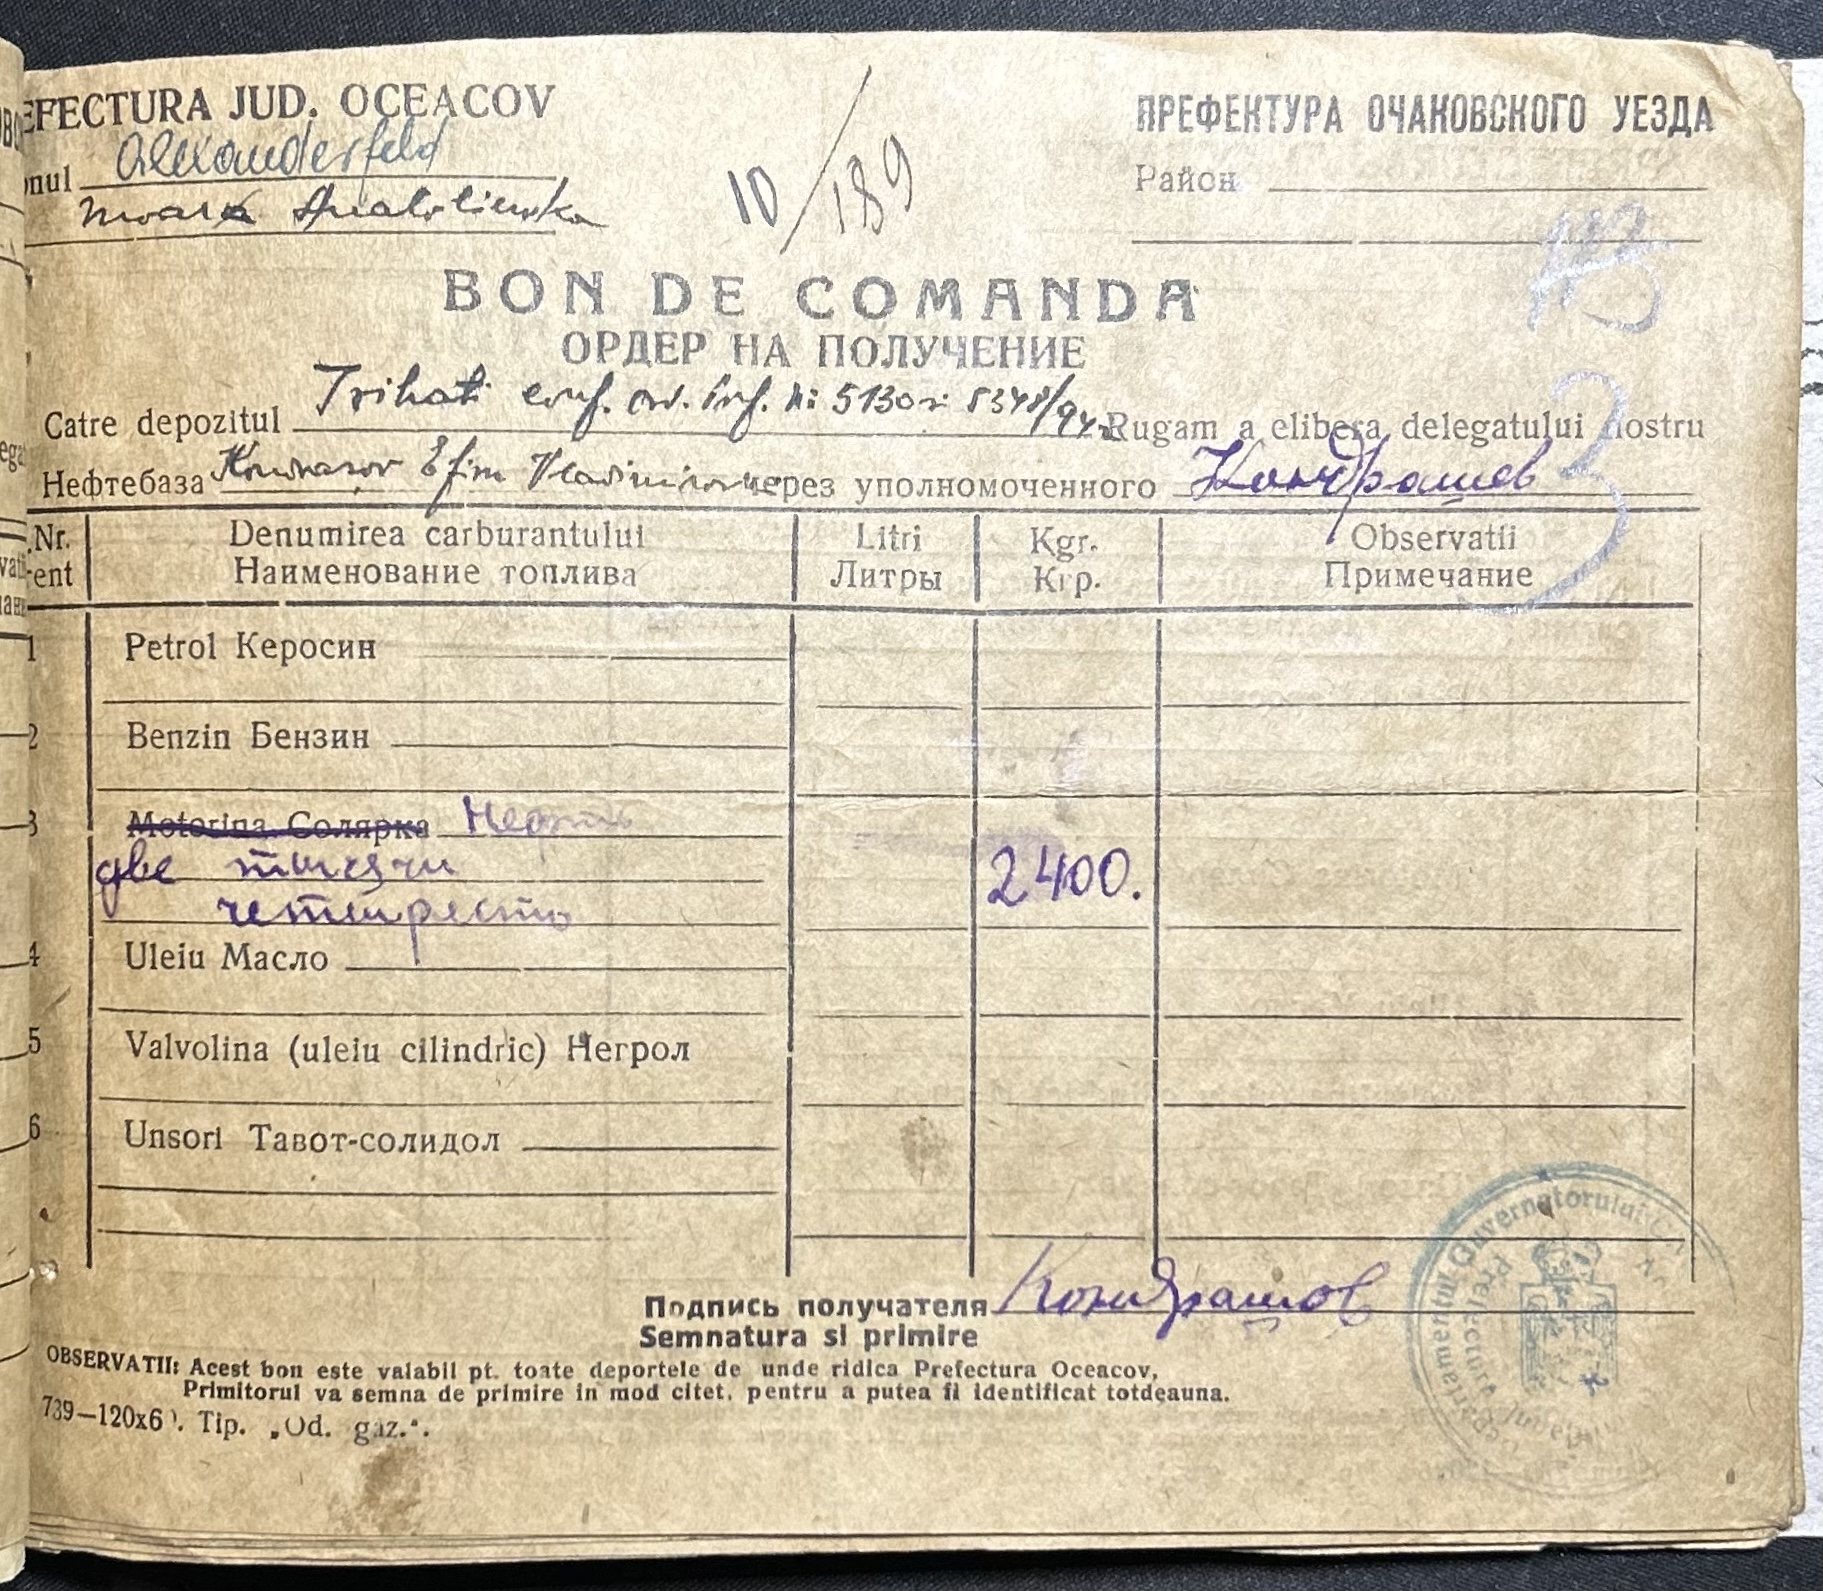 EFECTURA JUD. OCEACOV
ПРЕФЕКТУРА ОЧАКОВСКОГО УЕЗДА
onul Alexanderfeld
Район
moara Anatolievka
10/189
BON DE COMANDA
ОРДЕР НА ПОЛУЧЕНИЕ
Catre depozitul Trihati conf. ord. Rugam a elibera delegatului nostru
Нефтебаза Efim Vladimirov через уполномоченного Кондрашев
Nr. Denumirea carburantului Litri Kgr. Observatii
rent Наименование топлива Литры Кгр. Примечание
1 Petrol Керосин
2 Benzin Бензин
3 Motorina Солярка Нефть
две тысячи 2400.
четыреста
4 Uleiu Масло
5 Valvolina (uleiu cilindric) Негрол
6 Unsori Тавот-солидол
Подпись получателя Кондрашов
Semnatura si primire
OBSERVATII: Acest bon este valabil pt. toate deportele de unde ridica Prefectura Oceacov,
Primitorul va semna de primire in mod citet, pentru a putea fi identificat totdeauna.
739—120x6 . Tip. „Od. gaz.".
Guvernatorului
Prefectura